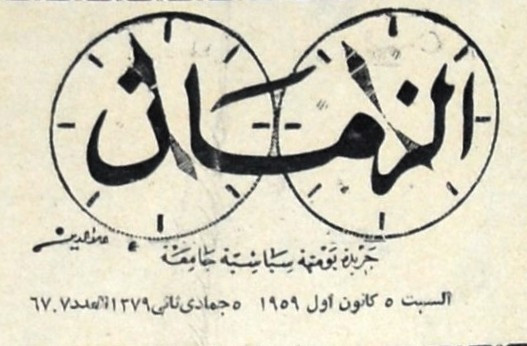 الزمان
جريدة يومية سياسية جامعة
السبت ٥ كانون اول ١٩٥٩ ٥ جمادى ثاني ١٣٧٩ العدد ٦٧٠٧